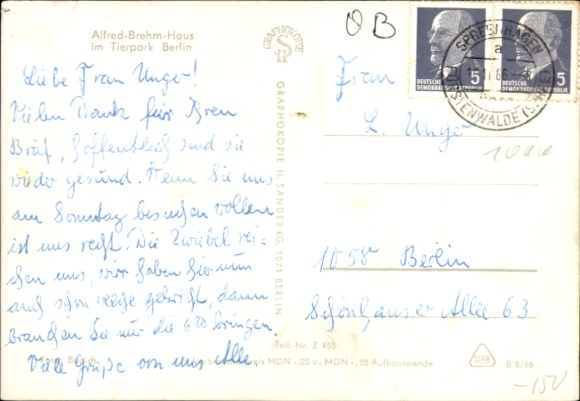 Alfred-Brehm-Haus
im Tierpark Berlin
Liebe Frau Unger!
Vielen Dank für Ihren
Brief, hoffentlich sind sie
wieder gesund. Wenn Sie uns
am Sonntag besuchen wollen
ist uns recht. Die Zwiebel rei-
chen uns, wir haben hier nun
auch schon welche gekricht, dann
brauchen Sie nur die bringen.
Viele Grüße von uns Alle
GRAPHOKOPIE
GRAPHOKOPIE H. SANDER KG, 1071 BERLIN
QB
Frau
L. Unger
1058 Berlin
Schönhauser Allee 63
DEUTSCHE
DEMOKRATISCHE REPUBLIK
5
DEUTSCHE
DEMOKRATISCHE REPUBLIK
5
SPREENHAGEN
a
FÜRSTENWALDE
Best. Nr. Z 455
MDN -,25 u. MDN -,05 Aufbauspende
B 8/66
-150